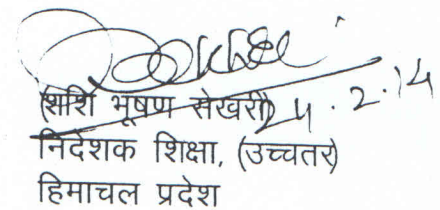 (शशि भूषण सेखरी)
24.2.14
निदेशक शिक्षा, (उच्चतर)
हिमाचल प्रदेश